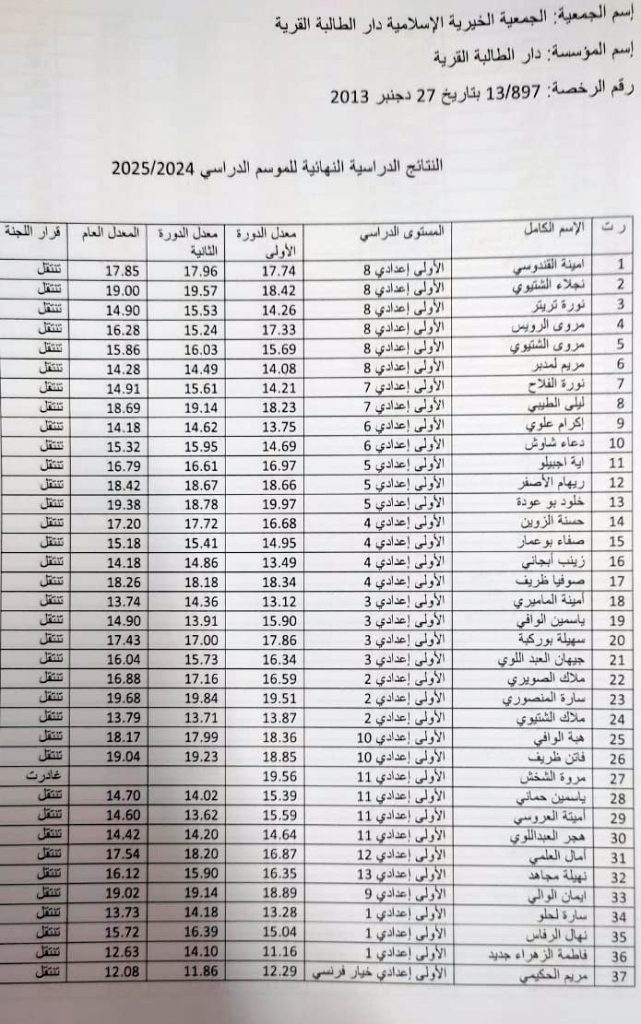 إسم الجمعية: الجمعية الخيرية الإسلامية دار الطالبة القرية
إسم المؤسسة: دار الطالبة القرية
رقم الرخصة: 13/897 بتاريخ 27 دجنبر 2013
النتائج الدراسية النهائية للموسم الدراسي 2025/2024
ر ت الإسم الكامل المستوى الدراسي معدل الدورة الأولى معدل الدورة الثانية المعدل العام قرار اللجنة
1 امينة القندوسي الأولى إعدادي 8 17.74 17.96 17.85 تنتقل
2 نجلاء الشتيوي الأولى إعدادي 8 18.42 19.57 19.00 تنتقل
3 نورة تريتر الأولى إعدادي 8 14.26 15.53 14.90 تنتقل
4 مروى الرويس الأولى إعدادي 8 17.33 15.24 16.28 تنتقل
5 مروى الشتيوي الأولى إعدادي 8 15.69 16.03 15.86 تنتقل
6 مريم لمدبر الأولى إعدادي 8 14.08 14.49 14.28 تنتقل
7 نورة الفلاح الأولى إعدادي 7 14.21 15.61 14.91 تنتقل
8 ليلى الطيبي الأولى إعدادي 7 18.23 19.14 18.69 تنتقل
9 إكرام علوي الأولى إعدادي 6 13.75 14.62 14.18 تنتقل
10 دعاء شاوش الأولى إعدادي 6 14.69 15.95 15.32 تنتقل
11 اية اجبيلو الأولى إعدادي 5 16.97 16.61 16.79 تنتقل
12 ريهام الأصفر الأولى إعدادي 5 18.66 18.67 18.42 تنتقل
13 خلود بو عودة الأولى إعدادي 5 19.97 18.78 19.38 تنتقل
14 حسنة الزوين الأولى إعدادي 4 16.68 17.72 17.20 تنتقل
15 صفاء بوعمار الأولى إعدادي 4 14.95 15.41 15.18 تنتقل
16 زينب أبجاني الأولى إعدادي 4 13.49 14.86 14.18 تنتقل
17 صوفيا ظريف الأولى إعدادي 4 18.34 18.18 18.26 تنتقل
18 أمينة الماميري الأولى إعدادي 3 13.12 14.36 13.74 تنتقل
19 ياسمين الوافي الأولى إعدادي 3 15.90 13.91 14.90 تنتقل
20 سهيلة بوركبة الأولى إعدادي 3 17.86 17.00 17.43 تنتقل
21 جيهان العبد اللوي الأولى إعدادي 3 16.34 15.73 16.04 تنتقل
22 ملاك الصويري الأولى إعدادي 2 16.59 17.16 16.88 تنتقل
23 سارة المنصوري الأولى إعدادي 2 19.51 19.84 19.68 تنتقل
24 ملاك الشتيوي الأولى إعدادي 2 13.87 13.71 13.79 تنتقل
25 هبة الوافي الأولى إعدادي 10 18.36 17.99 18.17 تنتقل
26 فاتن ظريف الأولى إعدادي 10 18.85 19.23 19.04 تنتقل
27 مروة الشخش الأولى إعدادي 11 19.56 غادرت
28 ياسمين حماني الأولى إعدادي 11 15.39 14.02 14.70 تنتقل
29 أميتة العروسي الأولى إعدادي 11 15.59 13.62 14.60 تنتقل
30 هجر العبداللوي الأولى إعدادي 11 14.64 14.20 14.42 تنتقل
31 أمال العلمي الأولى إعدادي 12 16.87 18.20 17.54 تنتقل
32 نهيلة مجاهد الأولى إعدادي 13 16.35 15.90 16.12 تنتقل
33 ايمان الوالي الأولى إعدادي 9 18.89 19.14 19.02 تنتقل
34 سارة لحلو الأولى إعدادي 1 13.28 14.18 13.73 تنتقل
35 نهال الرفاس الأولى إعدادي 1 15.04 16.39 15.72 تنتقل
36 فاطمة الزهراء جديد الأولى إعدادي 1 11.16 14.10 12.63 تنتقل
37 مريم الحكيمي الأولى إعدادي خيار فرنسي 12.29 11.86 12.08 تنتقل